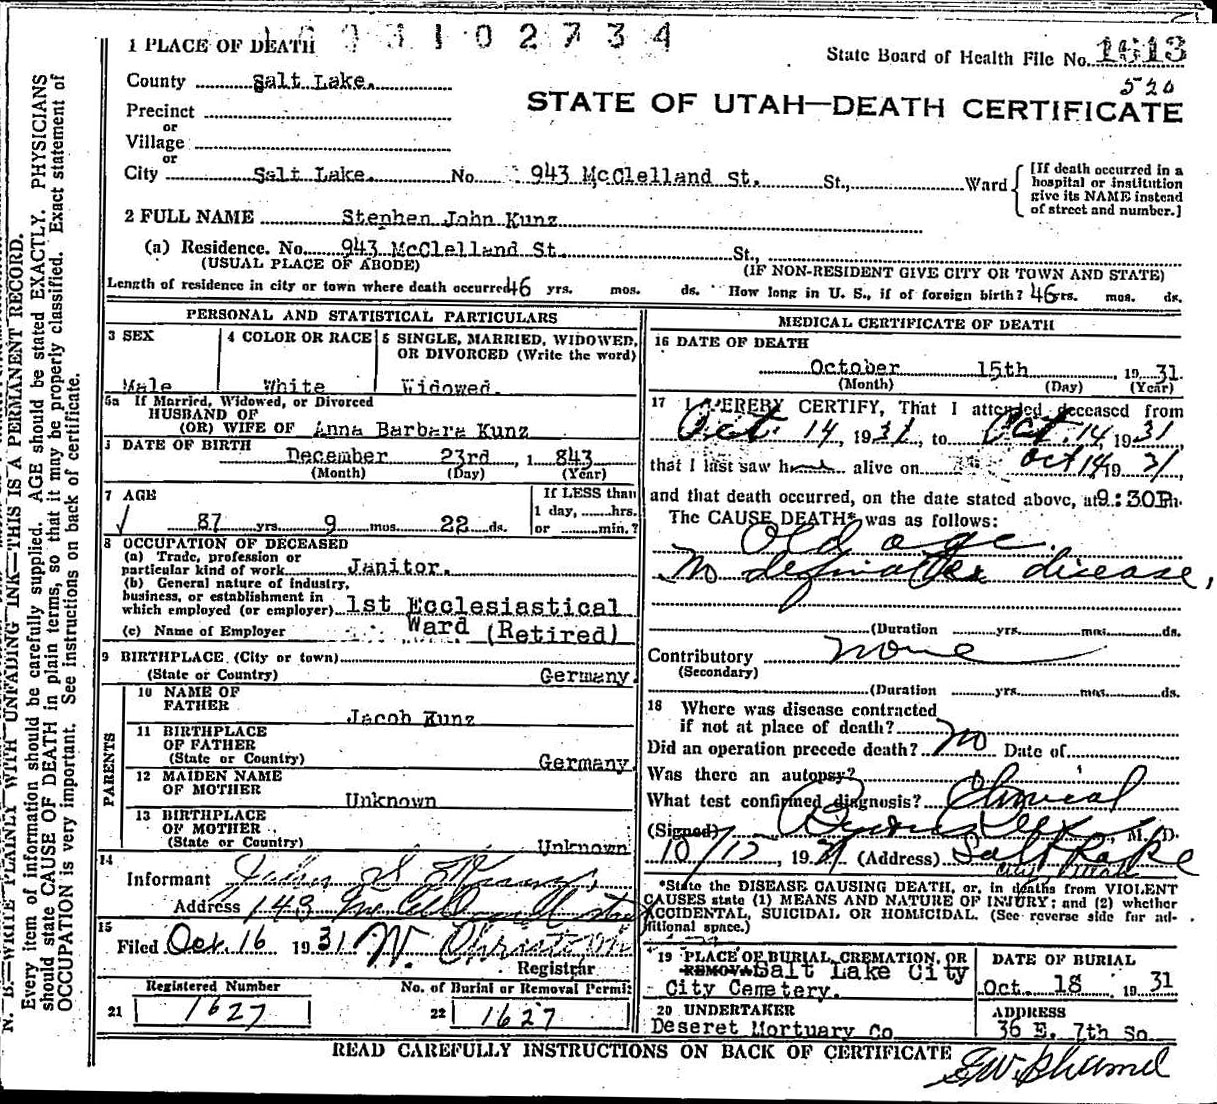 1 PLACE OF DEATH
3 1 0 2 7 3 4
State Board of Health File No. 1613
520
County Salt Lake.
STATE OF UTAH—DEATH CERTIFICATE
Precinct
or
Village
or
City Salt Lake. No. 943 McClelland St. St., Ward
[If death occurred in a
hospital or institution
give its NAME instead
of street and number.]
2 FULL NAME Stephen John Kunz
(a) Residence. No. 943 McClelland St. St.,
(USUAL PLACE OF ABODE) (IF NON-RESIDENT GIVE CITY OR TOWN AND STATE)
Length of residence in city or town where death occurred 46 yrs. mos. ds. How long in U. S., if of foreign birth? 46 yrs. mos. ds.
PERSONAL AND STATISTICAL PARTICULARS
3 SEX
Male
4 COLOR OR RACE
White
5 SINGLE, MARRIED, WIDOWED,
OR DIVORCED (Write the word)
Widowed.
5a If Married, Widowed, or Divorced
HUSBAND OF
(OR) WIFE OF Anna Barbara Kunz
DATE OF BIRTH
December 23rd, 1 843
(Month) (Day) (Year)
7 AGE
87 yrs. 9 mos. 22 ds.
If LESS than
1 day, hrs.
or min.?
8 OCCUPATION OF DECEASED
(a) Trade, profession or
particular kind of work Janitor.
(b) General nature of industry,
business, or establishment in
which employed (or employer) 1st Ecclesiastical
Ward (Retired)
(c) Name of Employer
9 BIRTHPLACE (City or town)
(State or Country) Germany.
PARENTS
10 NAME OF
FATHER
Jacob Kunz
11 BIRTHPLACE
OF FATHER
(State or Country) Germany
12 MAIDEN NAME
OF MOTHER
Unknown
13 BIRTHPLACE
OF MOTHER
(State or Country) Unknown
14
Informant John S
Address
15
Filed Oct. 16 1931 W. Christ
Registrar
Registered Number
21 1627
No. of Burial or Removal Permit
22 1627
MEDICAL CERTIFICATE OF DEATH
16 DATE OF DEATH
October 15th, 19 31
(Month) (Day) (Year)
17 I HEREBY CERTIFY, That I attended deceased from
Oct. 14, 1931, to Oct. 14 1931,
that I last saw h alive on Oct 14 19 31,
and that death occurred, on the date stated above, at 9:30P m.
The CAUSE DEATH* was as follows:
Old age.
No definite disease,
(Duration yrs. mos. ds.
Contributory none
(Secondary)
(Duration yrs. mos. ds.
18 Where was disease contracted
if not at place of death?
Did an operation precede death? No Date of
Was there an autopsy?
What test confirmed diagnosis? Clinical
(Signed) M. D.
10/15, 1931 (Address) Salt Lake
City Utah
*State the DISEASE CAUSING DEATH, or, in deaths from VIOLENT
CAUSES state (1) MEANS AND NATURE OF INJURY; and (2) whether
ACCIDENTAL, SUICIDAL OR HOMICIDAL. (See reverse side for additional space.)
19 PLACE OF BURIAL, CREMATION, OR
REMOVAL Salt Lake City
City Cemetery.
DATE OF BURIAL
Oct. 18 19 31
20 UNDERTAKER
Deseret Mortuary Co
ADDRESS
36 E. 7th So.
READ CAREFULLY INSTRUCTIONS ON BACK OF CERTIFICATE
N. B.—WRITE PLAINLY WITH UNFADING INK—THIS IS A PERMANENT RECORD.
Every item of information should be carefully supplied. AGE should be stated EXACTLY. PHYSICIANS
should state CAUSE OF DEATH in plain terms, so that it may be properly classified. Exact statement of
OCCUPATION is very important. See instructions on back of certificate.